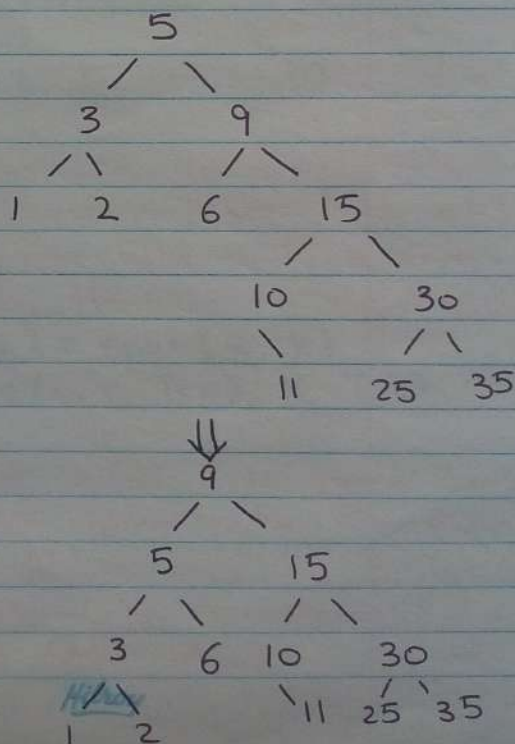 5
3 9
1 2 6 15
10 30
11 25 35
9
5 15
3 6 10 30
11 25 35
1 2